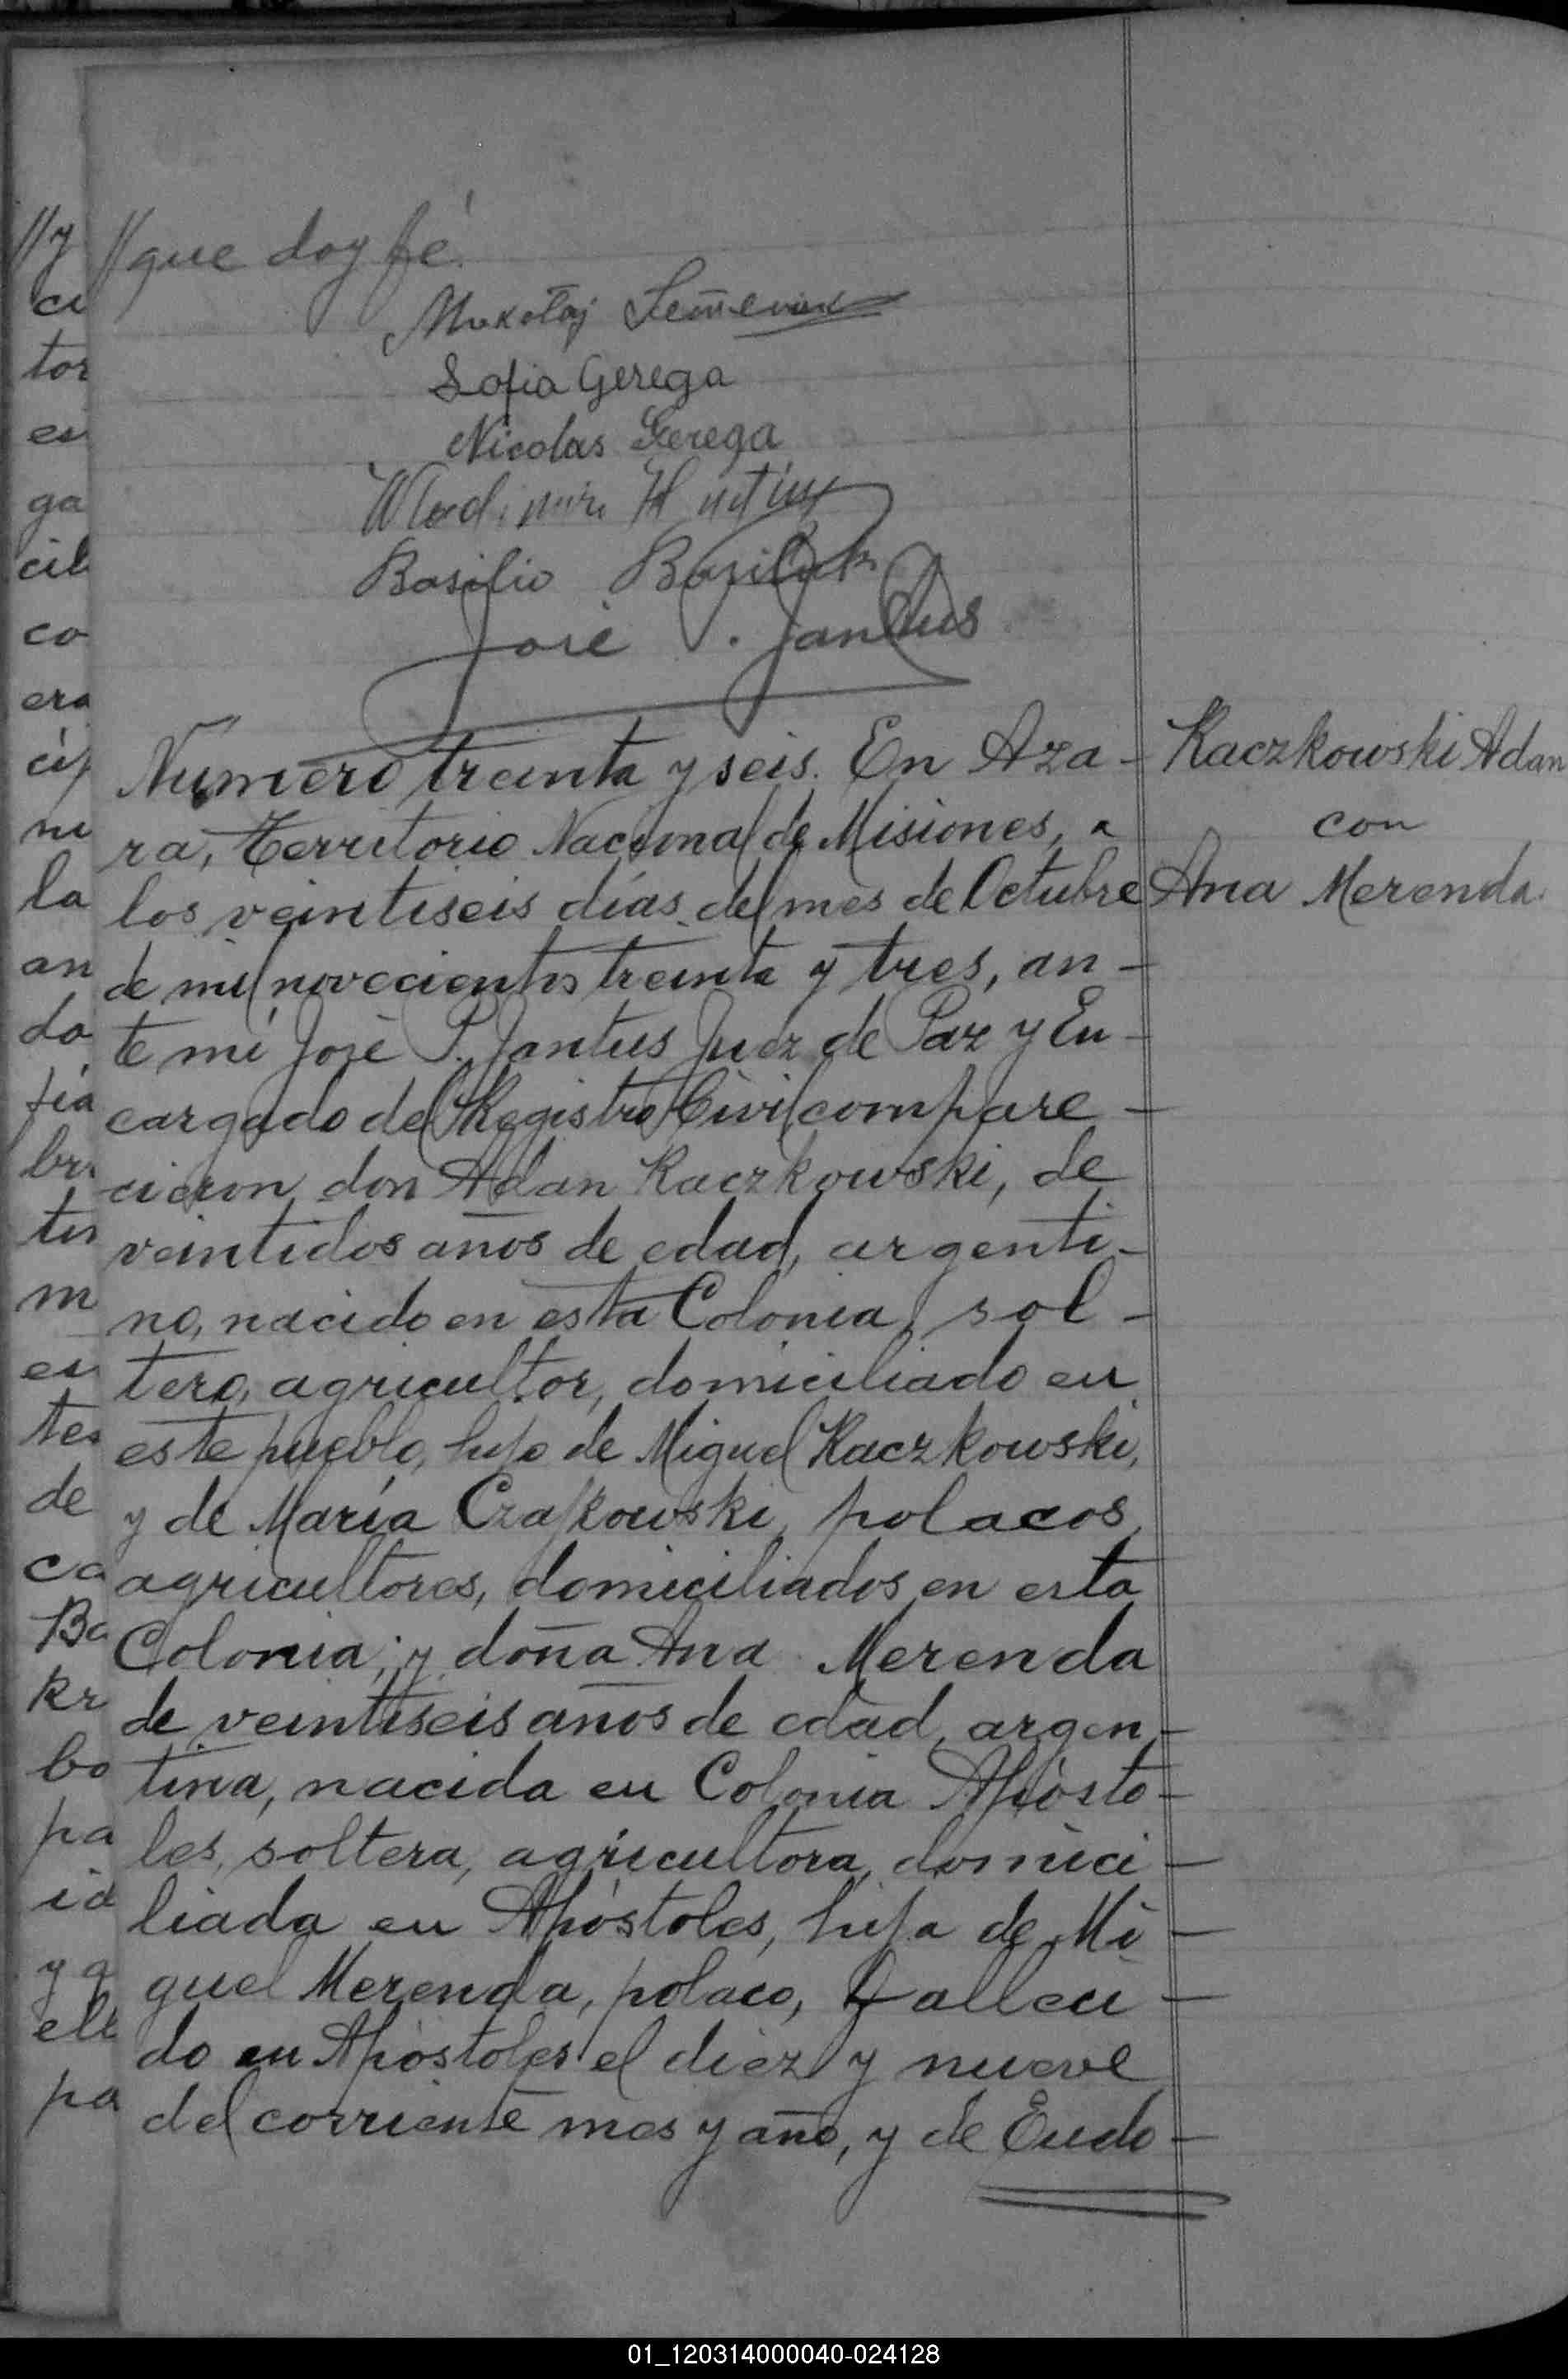 //que doy fé.
Sofia Gerega
Nicolas Gerega
Basilio
José P. Jantus
Número treinta y seis. En Aza-
ra, Territorio Nacional de Misiones, a
los veintiseis días del mes de Octubre
de mil novecientos treinta y tres, an-
te mí José P. Jantus Juez de Paz y En-
cargado del Registro Civil compare-
cieron don Adan Kaczkowski, de
veintidos años de edad, argenti-
no, nacido en esta Colonia, sol-
tero, agricultor, domiciliado en
este pueblo, hijo de Miguel Kaczkowski,
y de María Czajkowski, polacos,
agricultores, domiciliados en esta
Colonia; y doña Ana Merenda
de veintiseis años de edad, argen-
tina, nacida en Colonia Apósto-
les, soltera, agricultora, domici-
liada en Apóstoles, hija de Mi-
guel Merenda, polaco, falleci-
do en Apóstoles el diez y nueve
del corriente mes y año, y de Eudo-
Kaczkowski Adan
con
Ana Merenda
//y
ci
tor
en
ga
cil
co
era
cip
ni
la
an
do
fia
bri
tis
m
en
tes
de
ca
Ba
kr
bo
pa
id
y q
ell
pa
01_120314000040-024128